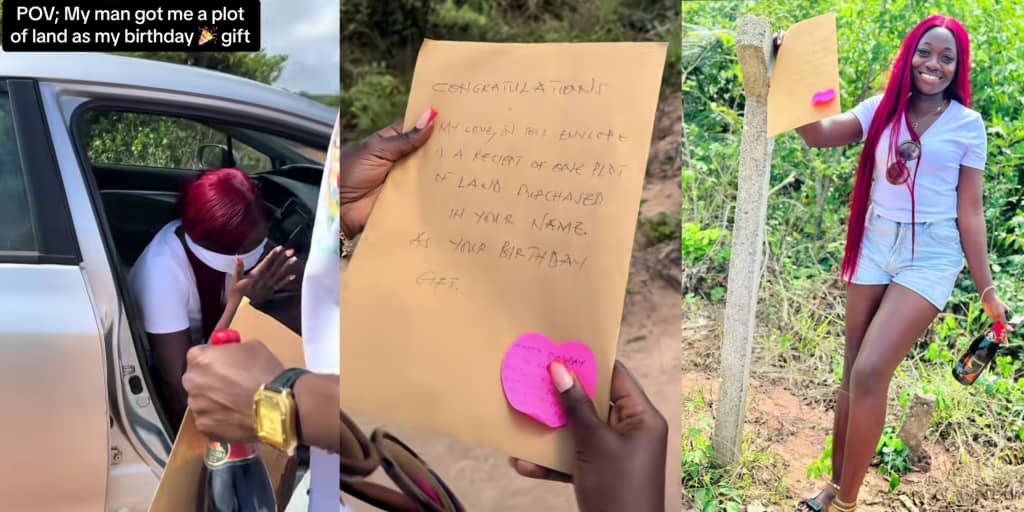 POV; My man got me a plot
of land as my birthday 🎉 gift
CONGRATULATIONS
MY LOVE, IN THIS ENVELOPE
IS A RECIEPT OF ONE PLOT
OF LAND PURCHASED
IN YOUR NAME.
AS YOUR BIRTHDAY
GIFT.